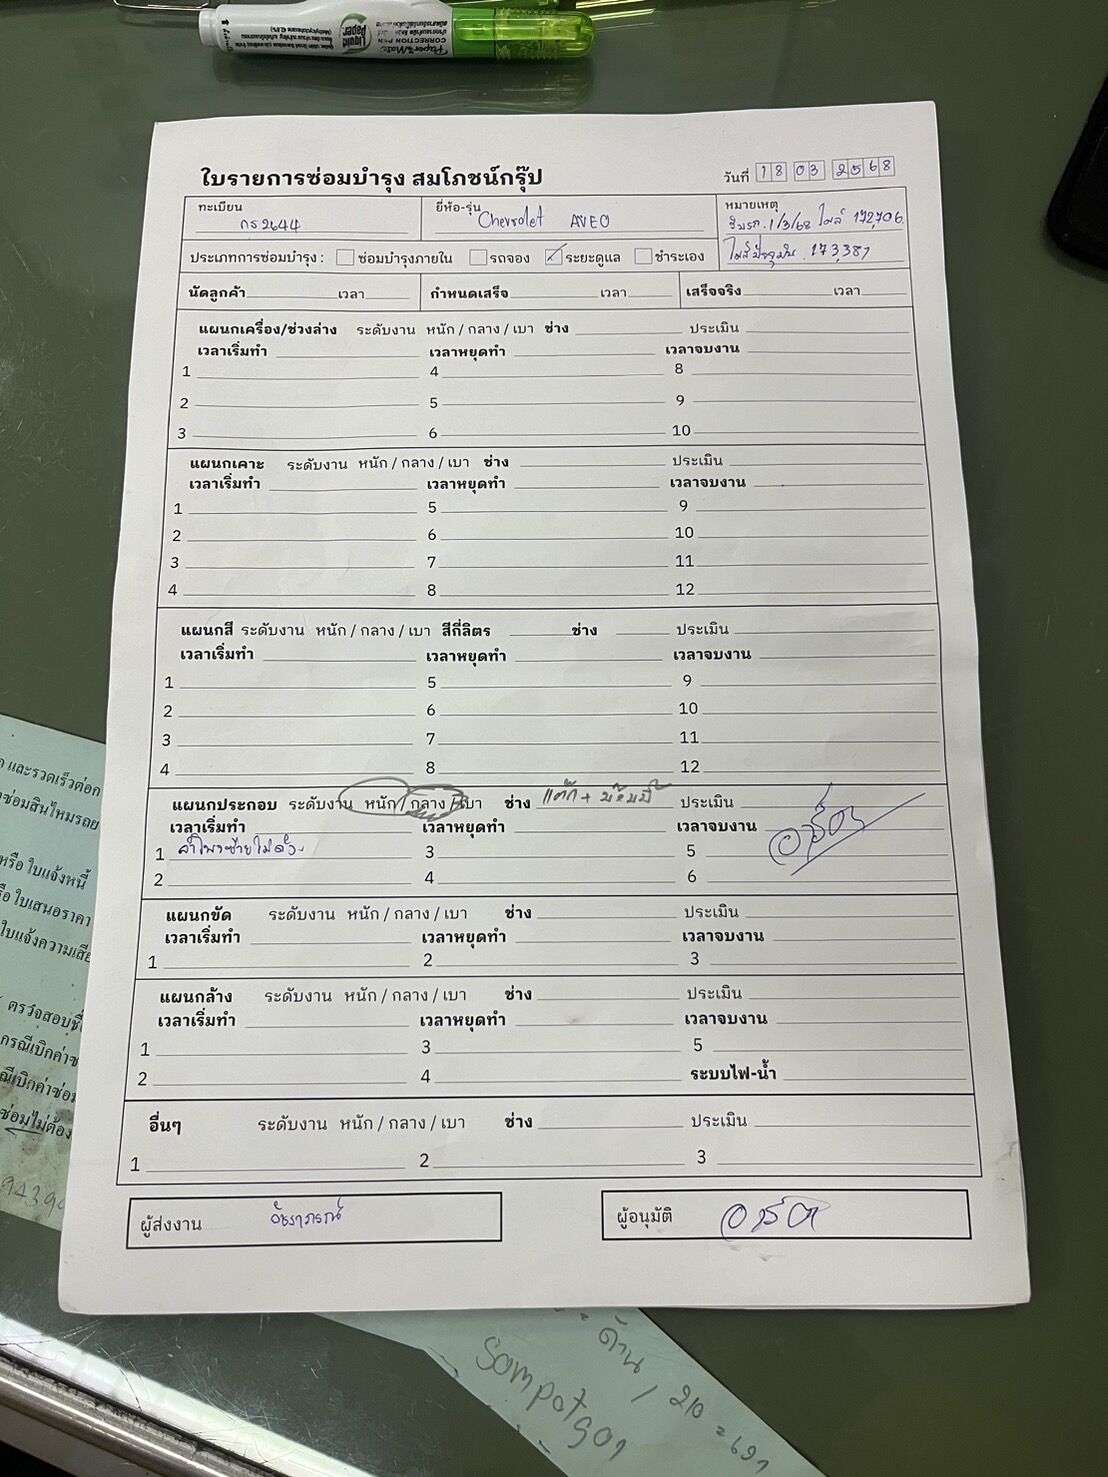 Paper Mate
CORRECTION PEN
Liquid Paper
ใบรายการซ่อมบำรุง สมโภชน์กรุ๊ป
วันที่ 18 03 2568
ทะเบียน กร 2644
ยี่ห้อ-รุ่น Chevrolet AVEO
หมายเหตุ
รับรถ 1/3/68 ไมล์ 172,706
ไมล์ปัจจุบัน 173,387
ประเภทการซ่อมบำรุง : ซ่อมบำรุงภายใน รถจอง ✓ ระยะดูแล ชำระเอง
นัดลูกค้า เวลา กำหนดเสร็จ เวลา เสร็จจริง เวลา
แผนกเครื่อง/ช่วงล่าง ระดับงาน หนัก / กลาง / เบา ช่าง ประเมิน
เวลาเริ่มทำ เวลาหยุดทำ เวลาจบงาน
1 4 8
2 5 9
3 6 10
แผนกเคาะ ระดับงาน หนัก / กลาง / เบา ช่าง ประเมิน
เวลาเริ่มทำ เวลาหยุดทำ เวลาจบงาน
1 5 9
2 6 10
3 7 11
4 8 12
แผนกสี ระดับงาน หนัก / กลาง / เบา สีกี่ลิตร ช่าง ประเมิน
เวลาเริ่มทำ เวลาหยุดทำ เวลาจบงาน
1 5 9
2 6 10
3 7 11
4 8 12
แผนกประกอบ ระดับงาน หนัก / กลาง / เบา ช่าง ประเมิน
เวลาเริ่มทำ เวลาหยุดทำ เวลาจบงาน
1 ลำโพงซ้ายไม่ดัง 3 5
2 4 6
แผนกขัด ระดับงาน หนัก / กลาง / เบา ช่าง ประเมิน
เวลาเริ่มทำ เวลาหยุดทำ เวลาจบงาน
1 2 3
แผนกล้าง ระดับงาน หนัก / กลาง / เบา ช่าง ประเมิน
เวลาเริ่มทำ เวลาหยุดทำ เวลาจบงาน
1 3 5
2 4 ระบบไฟ-น้ำ
อื่นๆ ระดับงาน หนัก / กลาง / เบา ช่าง ประเมิน
1 2 3
ผู้ส่งงาน อัชราภรณ์
ผู้อนุมัติ
และรวดเร็วต่อค
ซ่อมสินไหมรถย
หรือ ใบแจ้งหนี้
อ ใบเสนอราคา
ใบแจ้งความเสีย
ตรวจสอบชื่
กรณีเบิกค่าซ
ณีเบิกค่าซ่อม
ซ่อมไม่ต้อง
ด้าน / 210